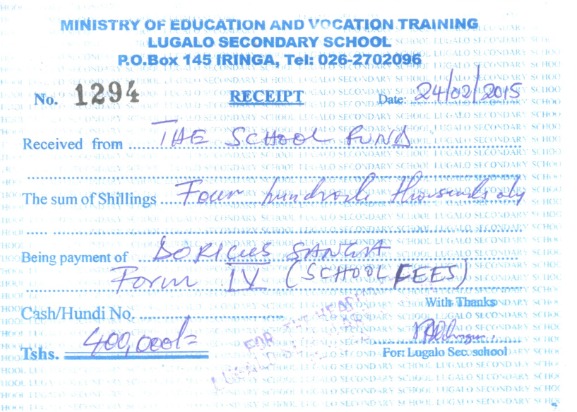 MINISTRY OF EDUCATION AND VOCATION TRAINING
LUGALO SECONDARY SCHOOL
P.O.Box 145 IRINGA, Tel: 026-2702096
No. 1294 RECEIPT Date: 24/02/2015
Received from THE SCHOOL FUND
The sum of Shillings Four hundred thousands only
Being payment of DORICUS SANGA
Form IV (SCHOOL FEES)
With Thanks
Cash/Hundi No.
Tshs. 400,000/=
FOR THE HEADM
For: Lugalo Sec. school